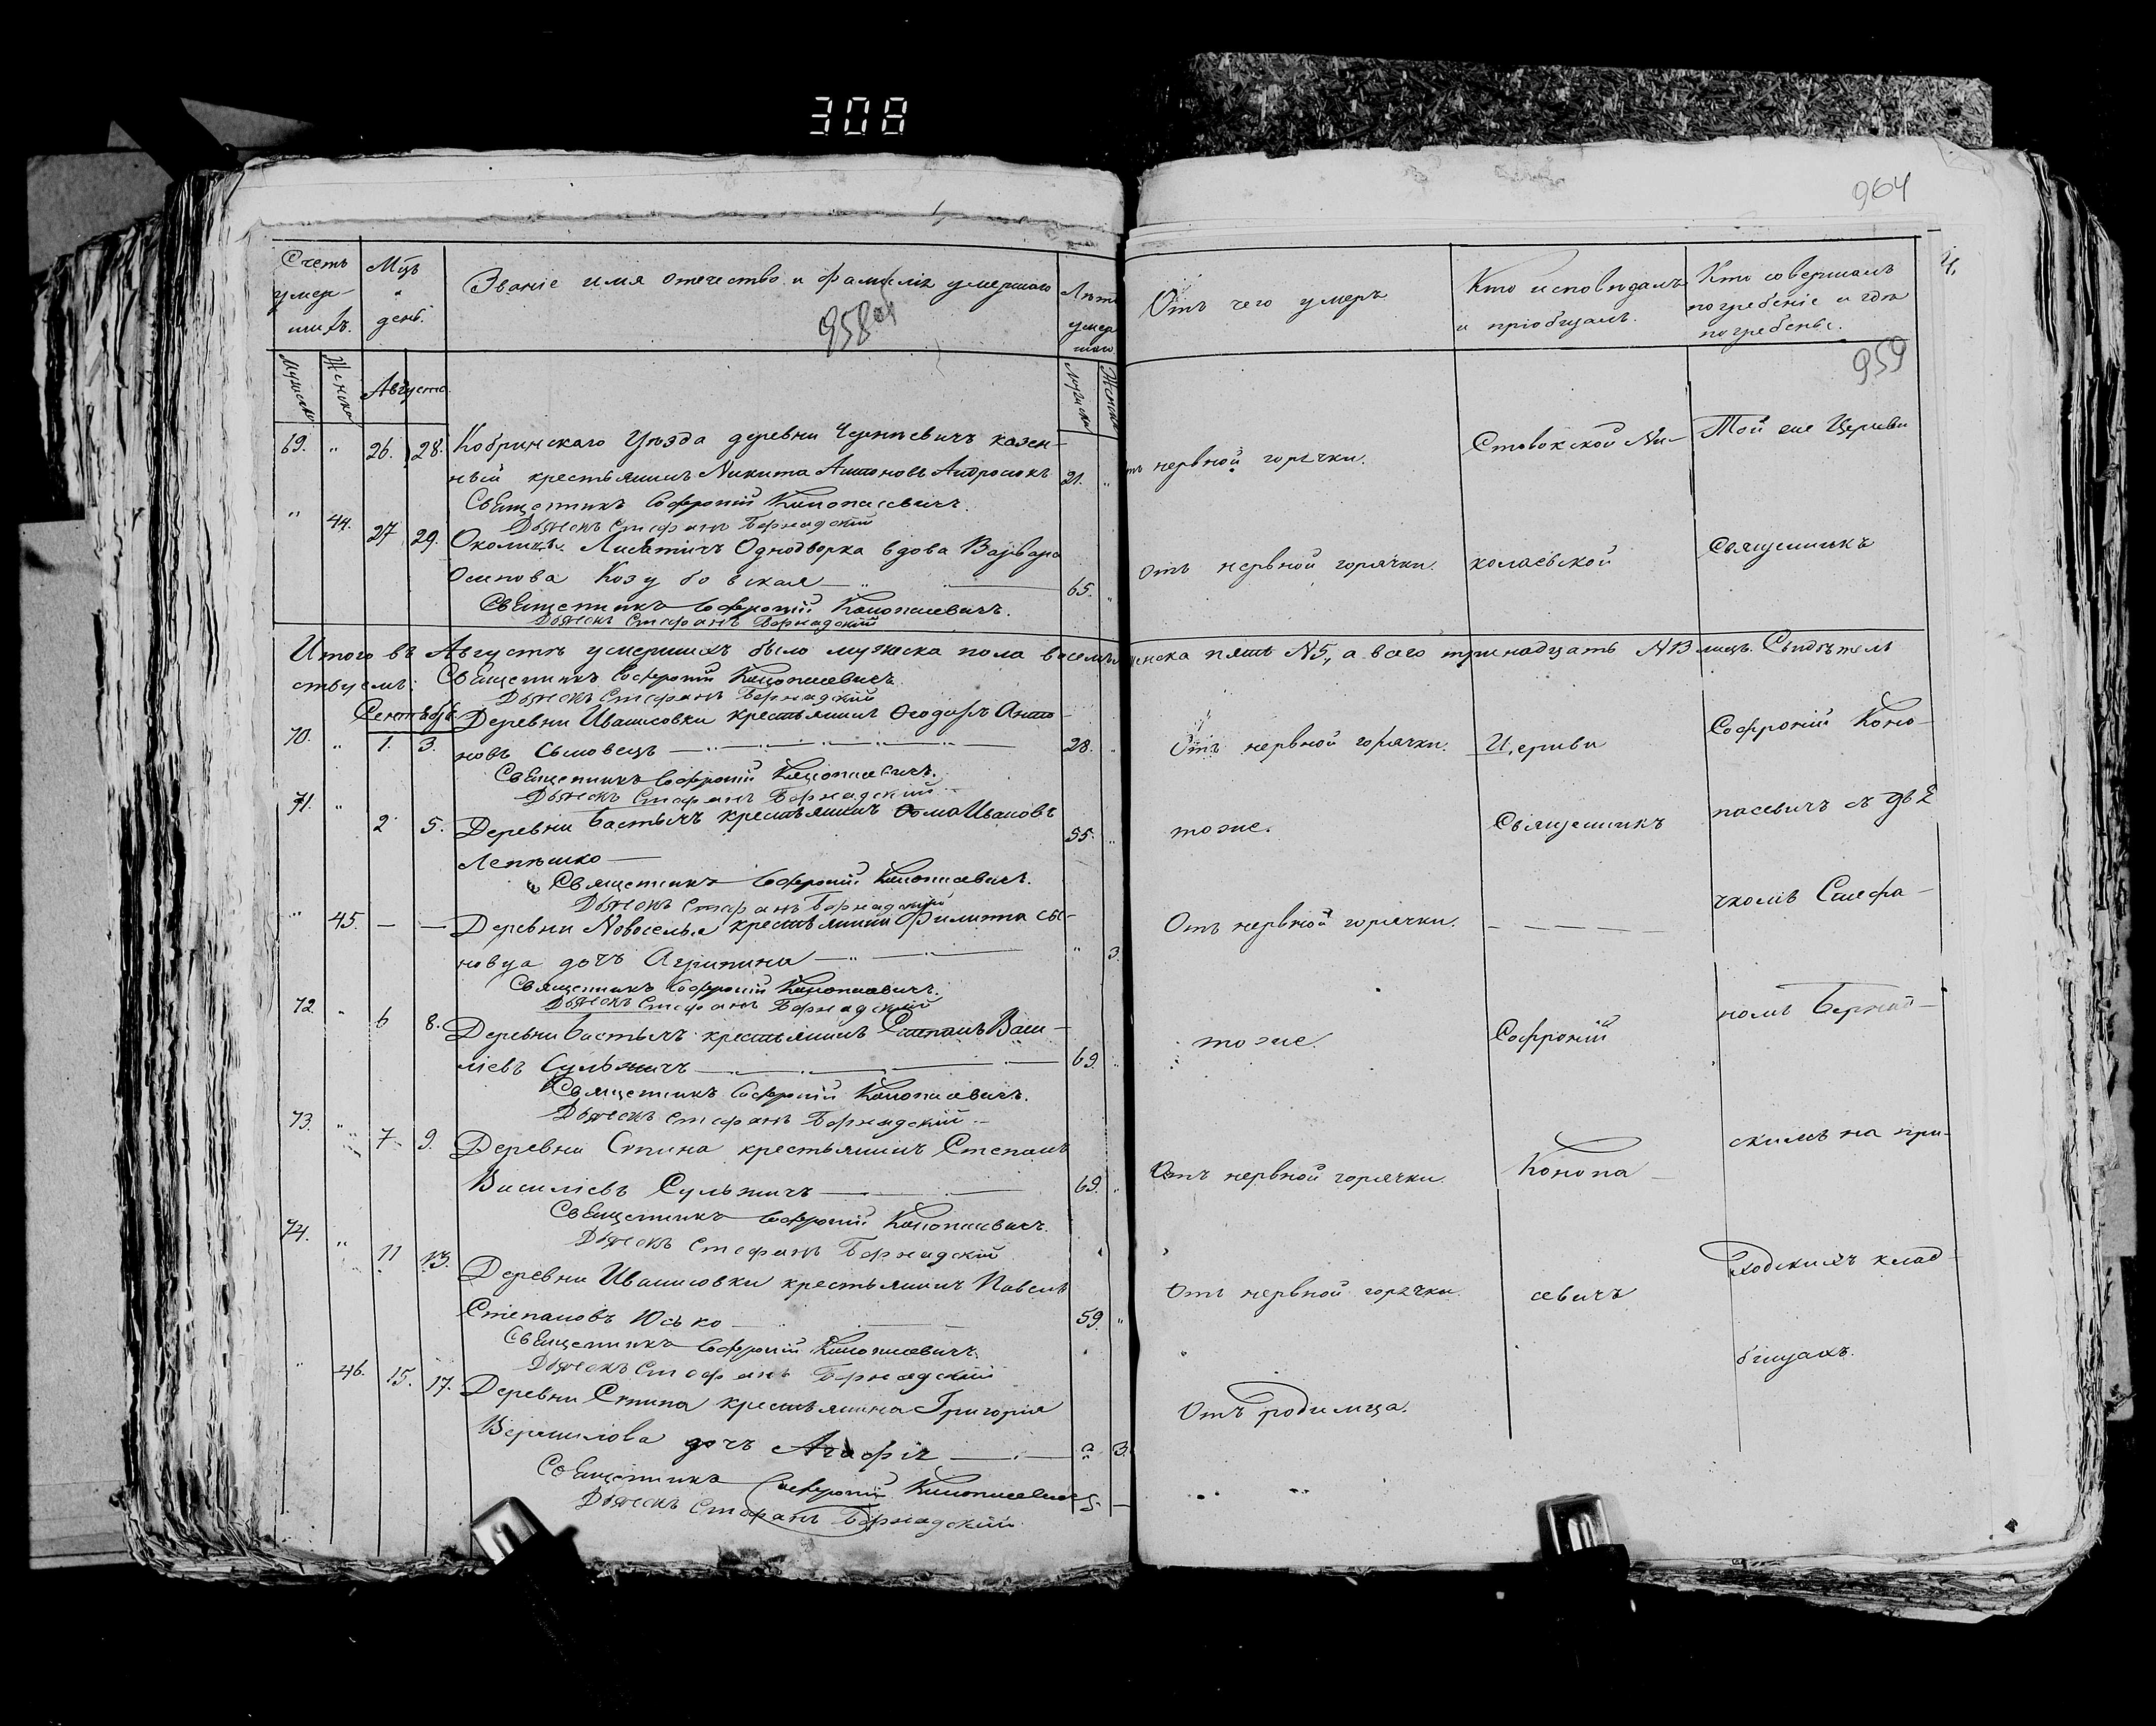 308
964
Счетъ
умер-
шихъ.
Мцъ
и
день.
Званіе имя отечество и фамилія умершаго
958об
Лѣта
умер
шаго
Мужска
Женска
Августа.
Мужеска
Женска
69. " 26. 28. Кобринскаго Уѣзда деревни Черневичъ казен-
ный крестьянинъ Никита Антоновъ Андросюкъ 21. "
Священникъ Софроній Конопасевичъ.
Дьячекъ Стефанъ Бернадскій
" 44. 27 29. Околицы Лисятичъ Однодворка вдова Варвара
Осипова Козубовская 65.
Священникъ Софроній Конопасевичъ.
Дьячекъ Стефанъ Бернадскій
Итого въ Августѣ умершихъ было мужеска пола восемь
ствуемъ: Священникъ Софроній Конопасевичъ
Дьячекъ Стефанъ Бернадскій
Сентябрь. Деревни Ивашковки крестьянинъ Ѳеодоръ Анто-
70. " 1. 3. новъ Сымовецъ 28. "
Священникъ Софроній Конопасевичъ.
Дьячекъ Стефанъ Бернадскій
71. " 2 5. Деревни Бастычъ крестьянинъ Ѳома Ивановъ 55. "
Лепѣшко
Священникъ Софроній Конопасевичъ.
Дьячекъ Стефанъ Бернадскій
" 45. — — Деревни Новоселья крестьянина Филиппа Сы-
новца дочъ Агрипина " 3.
Священникъ Софроній Конопасевичъ.
Дьячекъ Стефанъ Бернадскій
72. " 6 8. Деревни Бастычъ крестьянинъ Степанъ Васи-
ліевъ Сульжичъ 69. "
Священникъ Софроній Конопасевичъ.
Дьячекъ Стефанъ Бернадскій
73. " 7 9. Деревни Стпина крестьянинъ Степанъ
Василіевъ Сульжичъ 69. "
Священникъ Софроній Конопасевичъ.
Дьячекъ Стефанъ Бернадскій
74. " 11 13. Деревни Ивашковки крестьянинъ Павелъ
Степановъ Юсько 59. "
Священникъ Софроній Конопасевичъ.
Дьячекъ Стефанъ Бернадскій
" 46. 15. 17. Деревни Стпина крестьянина Григорія
дочъ Агафія 3.
Священникъ Софроній Конопасевичъ
Дьячекъ Стефанъ Бернадскій
Отъ чего умеръ
Кто исповѣдалъ
и пріобщалъ.
Кто совершалъ
погребеніе и гдѣ
погребены.
959
нервной горячки.
Стовокской Ни-
Той же Церкви
Отъ нервной горячки.
колаевской
Священникъ
женска пять №5, а всего тринадцать №13 лицъ. Свидѣтель
Отъ нервной горячки.
Церкви
Софроній Коно-
тоже.
Священникъ
пасевичъ съ дья
Отъ нервной горячки.
— — — —
чкомъ Стефа-
тоже.
Софроній
номъ Бернад-
Отъ нервной горячки.
Конопа-
скимъ на при-
Отъ нервной горячки.
севичъ
ходскихъ клад-
Отъ родимца.
бищахъ.